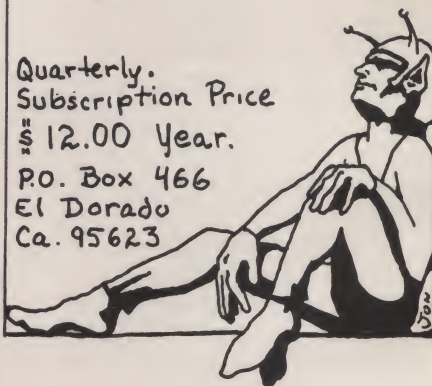 Quarterly.
Subscription Price
$ 12.00 Year.
P.O. Box 466
El Dorado
Ca. 95623
JON